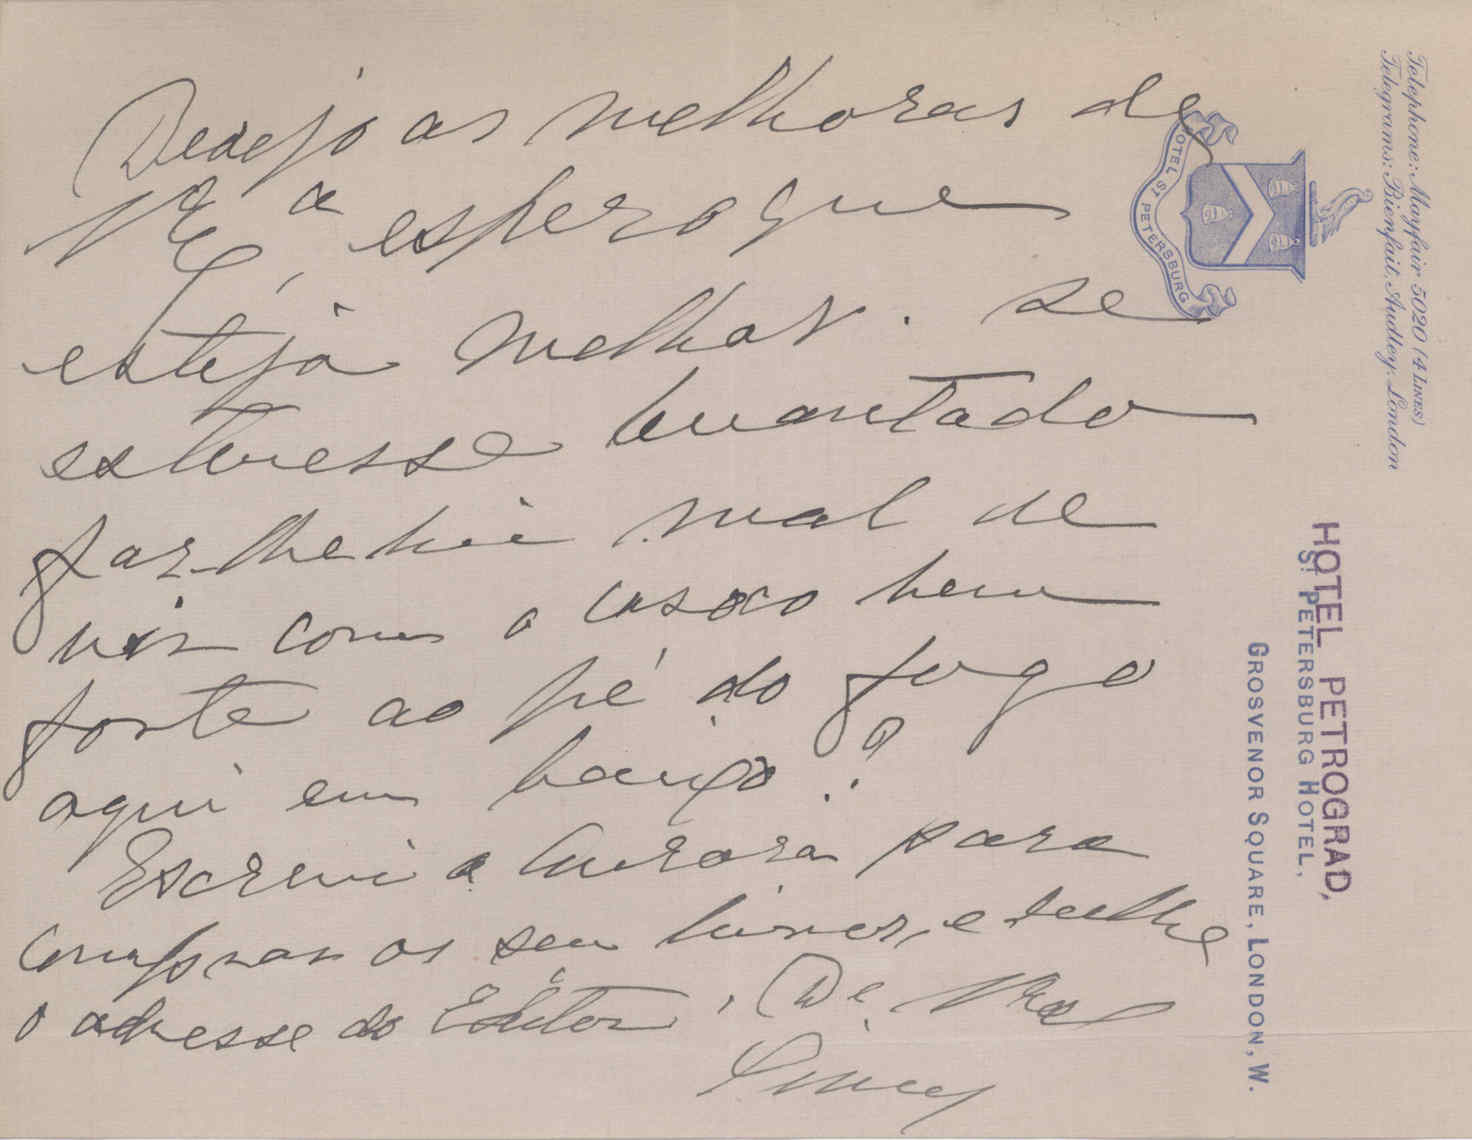 Desejo as melhoras de
V. Ex.ª, espero que
esteja melhor. se
estivesse levantado
far-lhe-hia mal de
vir com o casaco bem
forte ao pé do fogo
aqui em baixo?
Escrevi a Aurora para
comprar os seus livros, e dei-lhe
o adresse do Editor. De Vexª
Telephone: Mayfair 5020 (4 LINES)
Telegrams: Bienfait, Audley, London
HOTEL ST PETERSBURG
HOTEL PETROGRAD,
ST PETERSBURG HOTEL,
GROSVENOR SQUARE, LONDON, W.